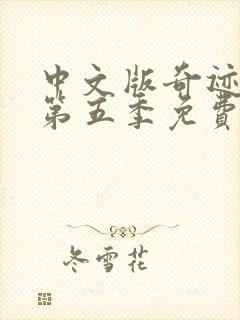 中文版奇迹
第五季免費
冬雪花